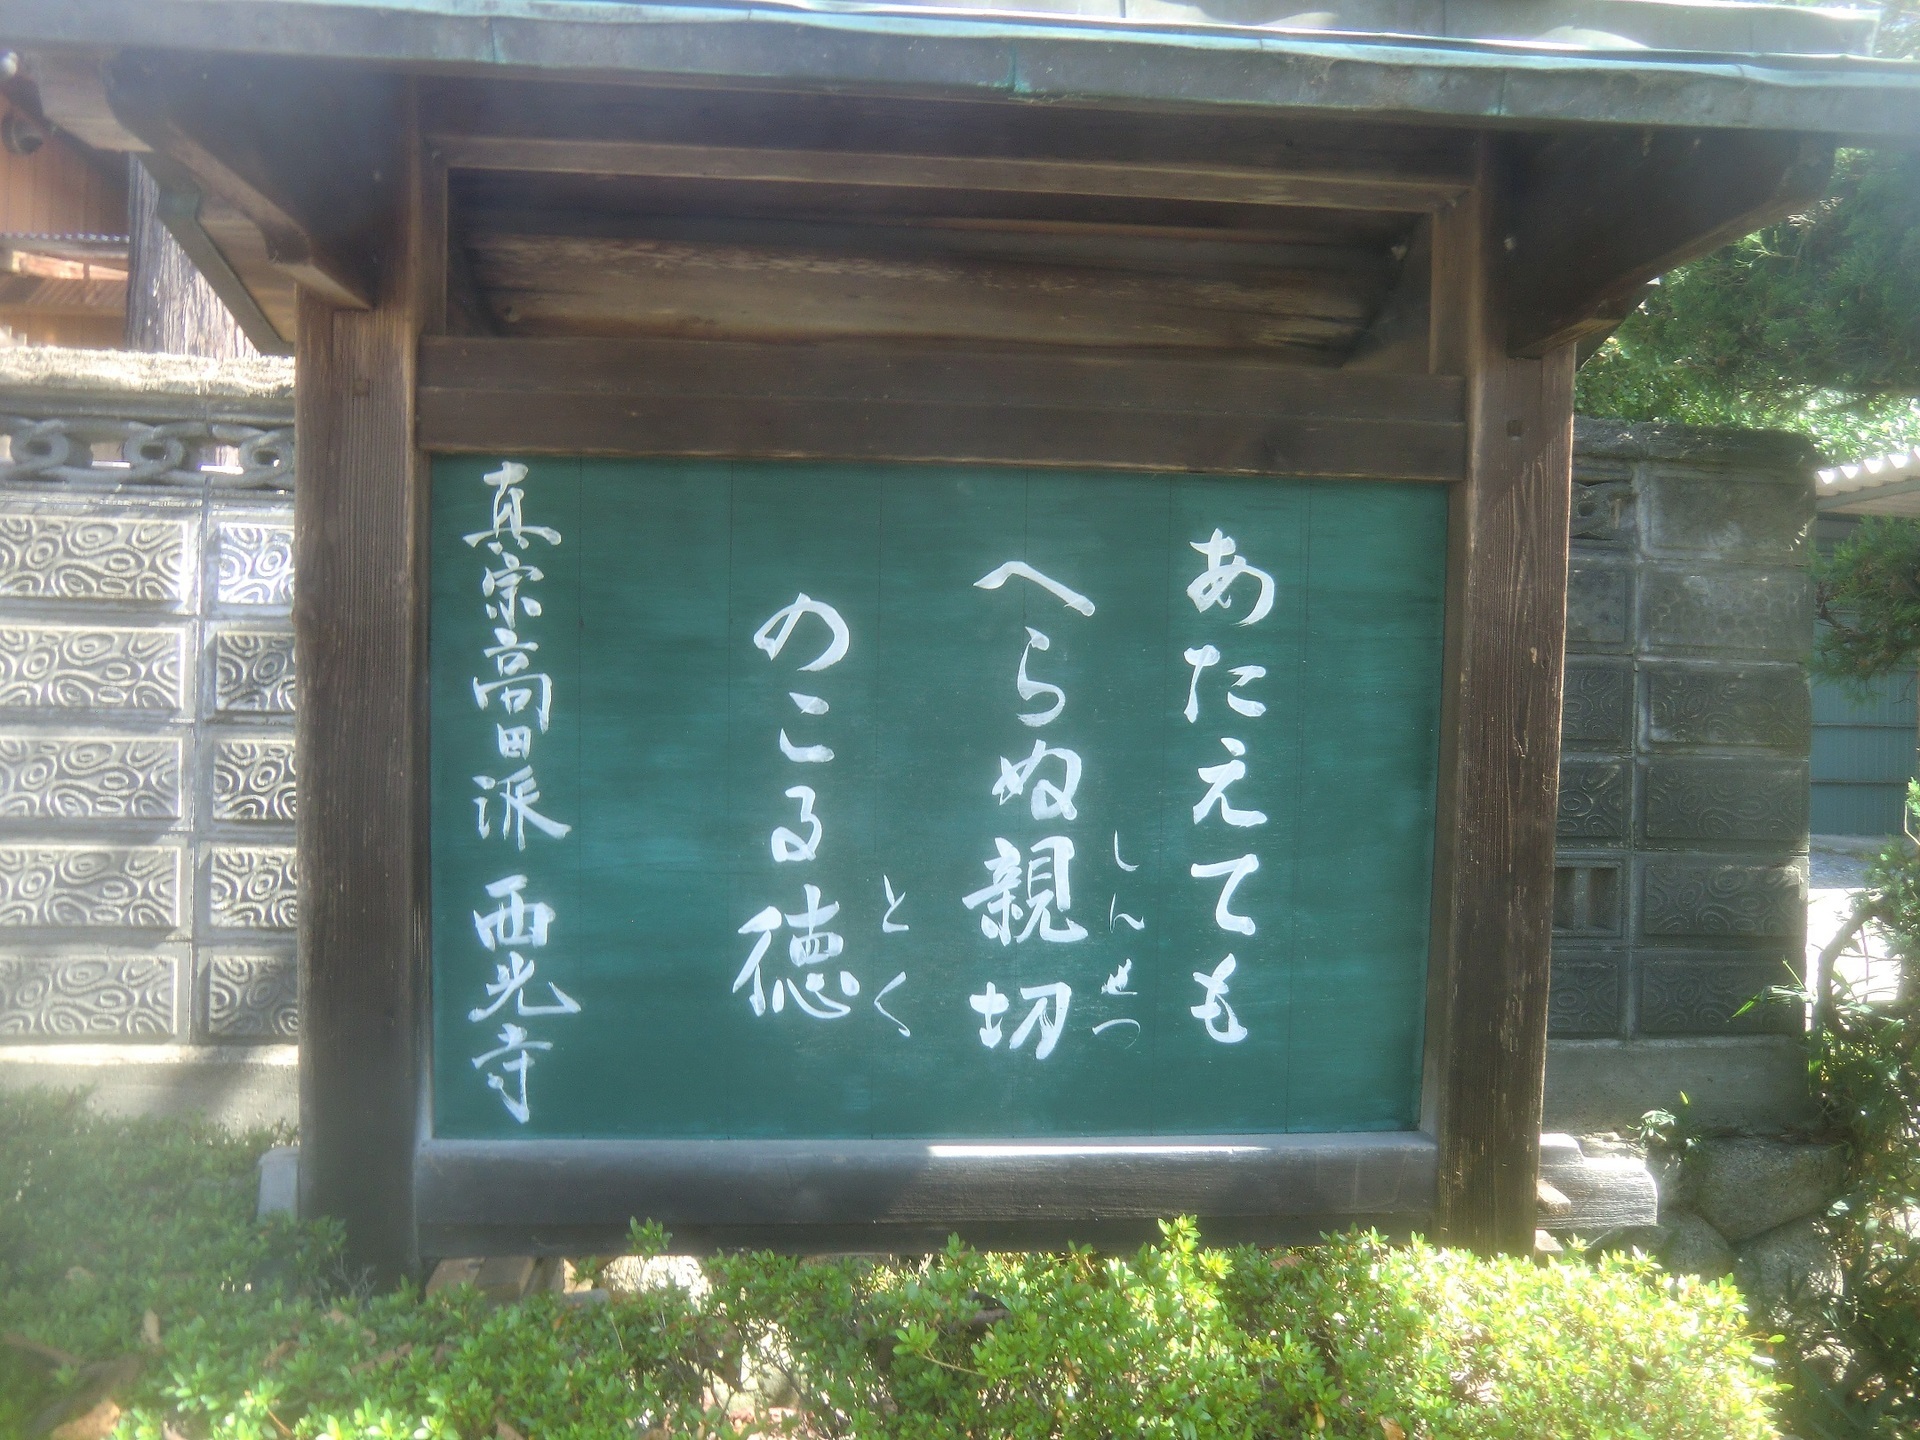 あたえても
しんせつ
へらぬ親切
とく
のこる徳
真宗高田派 西光寺